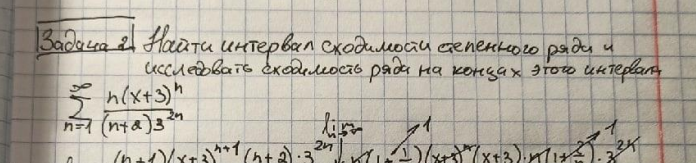 Задача 2 Найти интервал сходимости степенного ряда и
исследовать сходимость ряда на концах этого интервала
∞
∑ n(x+3)^n / (n+2)3^{2n}
n=1
lim 1 1
(n+1)(x+3)^{n+1}(n+2)·3^{2n}